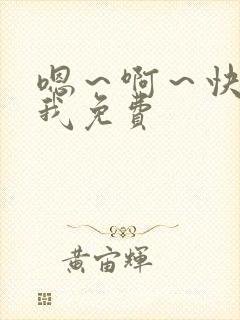 嗯～啊～快
我免费
黄宙辉